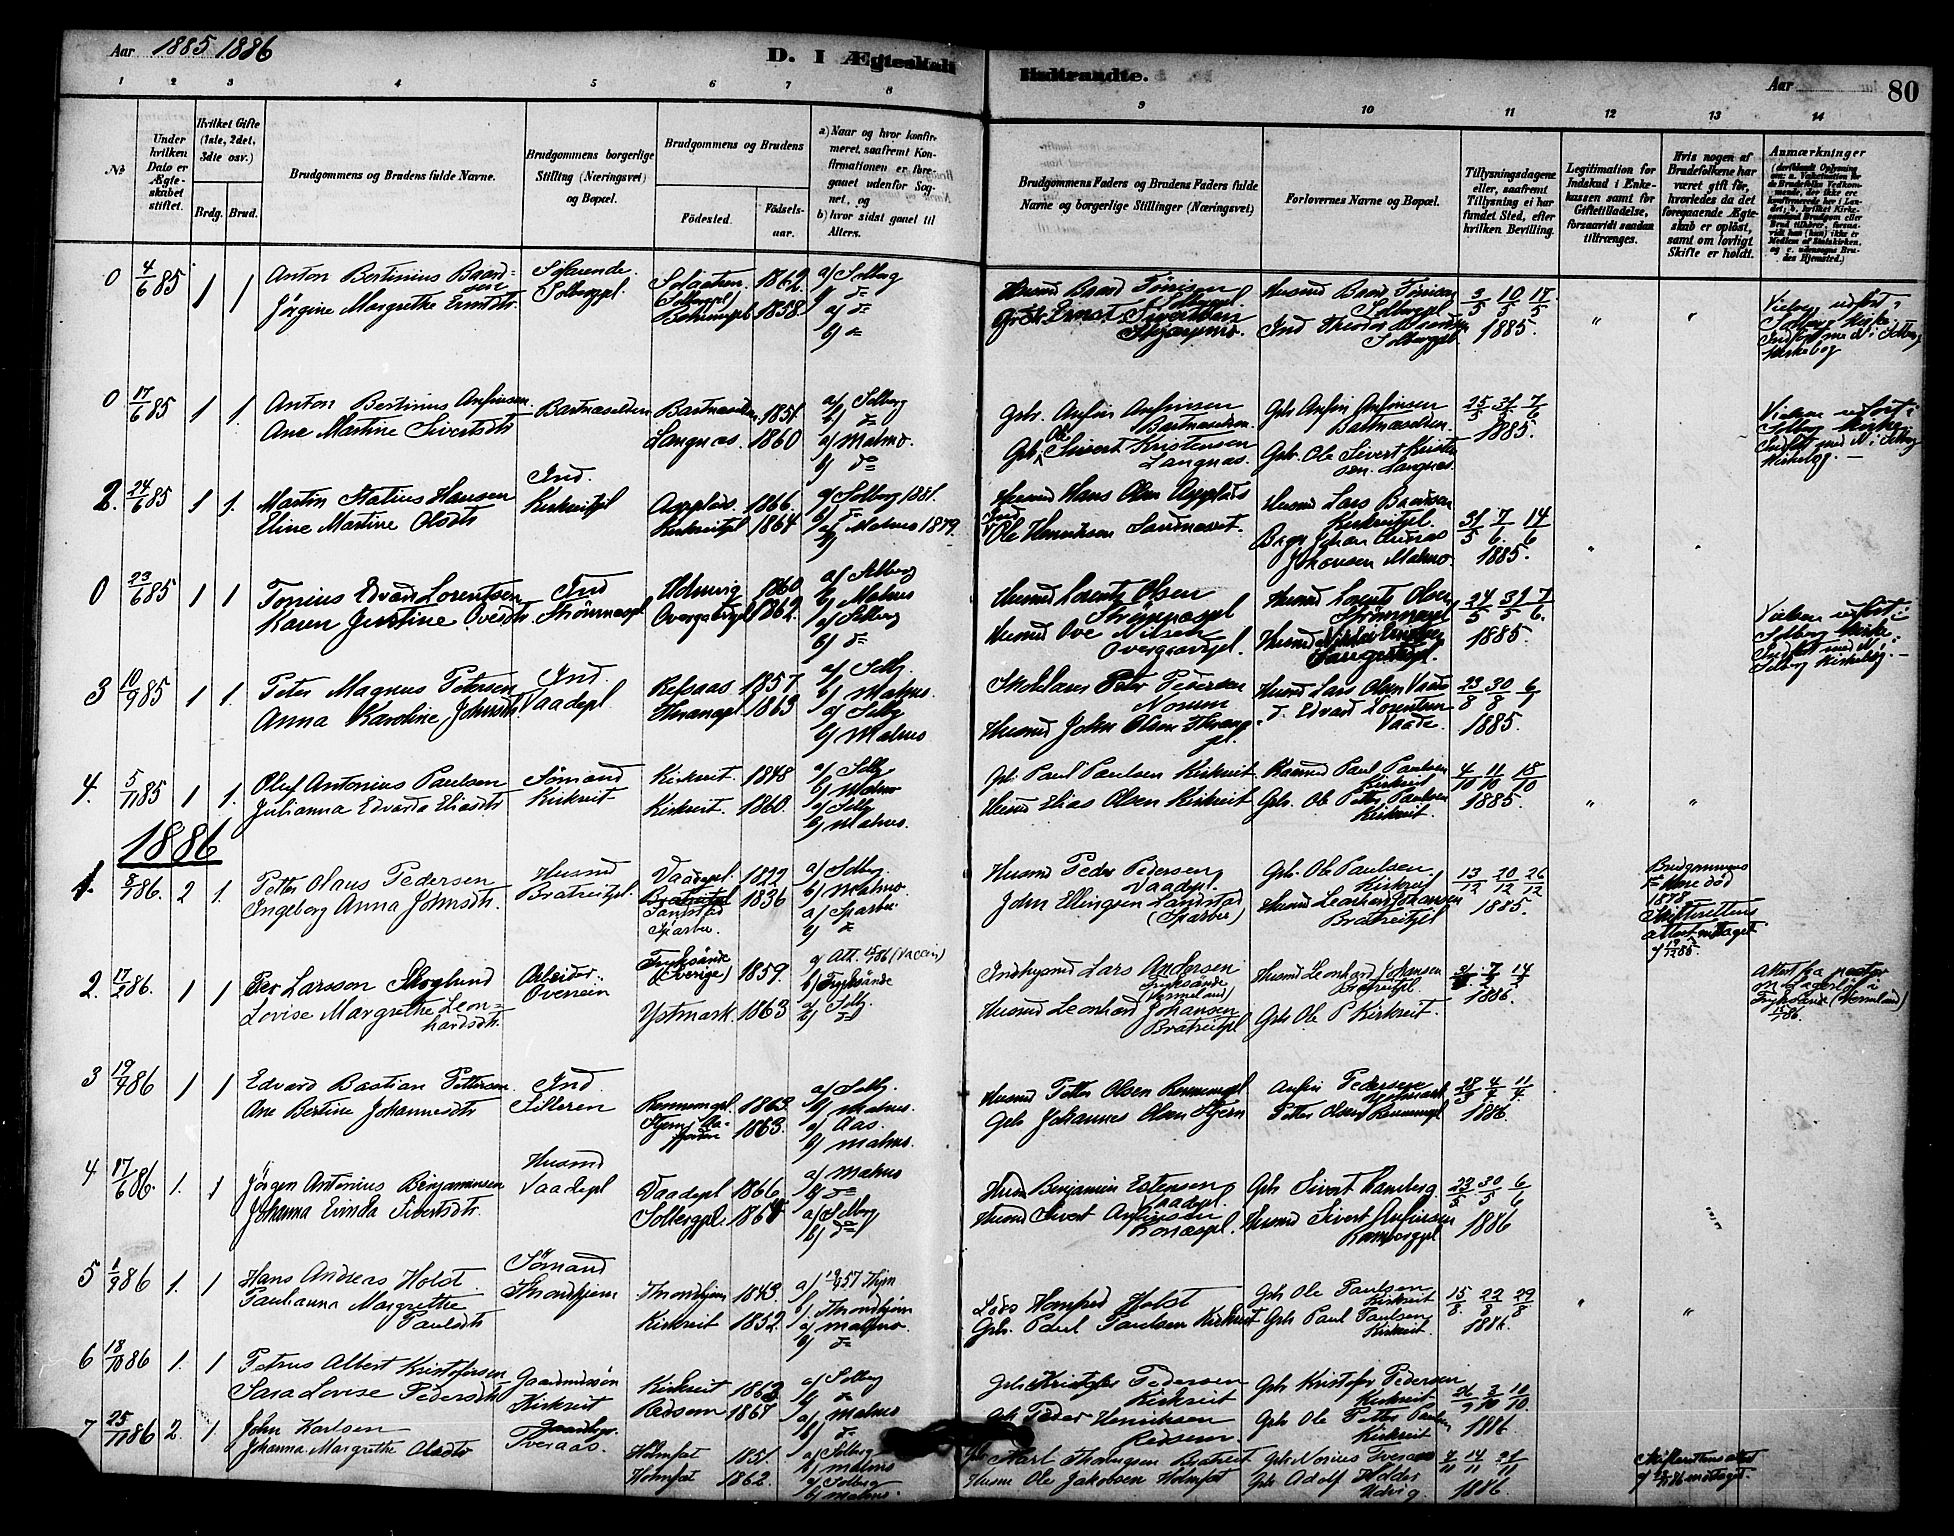 Aar 1885 1886
D. I Ægteskab
Indtraadte.
Aar
80
1 2 3 4 5 6 7 8 9 10 11 12 13 14
No
Under hvilken Dato er Ægteskabet stiftet.
Hvilket Gifte (1ste, 2det, 3die osv.)
Brdg. Brud.
Brudgommens og Brudens fulde Navne.
Brudgommens borgerlige Stilling (Næringsvei) og Bopæl.
Brudgommens og Brudens
Fødested.
Fødselsaar.
a) Naar og hvor konfirmeret, saafremt Konfirmationen er foregaaet udenfor Sognet, og
b) hvor sidst gaaet til Alters.
Brudgommens Faders og Brudens Faders fulde Navne og borgerlige Stillinger (Næringsvei)
Forlovernes Navne og Bopæl.
Tillysningsdagene eller, saafremt Tillysning ei har fundet Sted, efter hvilken Bevilling.
Legitimation for Indskud i Enkekassen samt for Giftetilladelse, forsaavidt saadan tiltrænges.
Hvis nogen af Brudefolkene har været gift før, hvorledes da det foregaaende Ægteskab er opløst, samt om lovligt Skifte er holdt.
Anmærkninger
0 4/6 85 1 1 Anton Bertinius Baardsen
Jørgine Margrethe Ernstdtr.
Solbergpl. 1862 1858
a/ Solberg
b/ do
a/ do
b/ do
Husmd Baard Tønisen Solbergpl
Ernst Sivertsen
Husmd Baard Tønisen Solbergpl
Ind. Theodor Solbergpl
3/5 10/5 17/5 1885.
Vielsen udført i Solberg Kirke. Indført med No i Solberg Kirkebog
0 17/6 85 1 1. Anton Bertinius Anfinsen
Ane Martine Sivertsdtr
Bartnæsalden
Bartnæsalden 1851
Langnæs. 1860
a/ Solberg
b/ do
a/ Malmo.
b/ do
Gbr. Anfin Anfinsen Bartnæsalden
Gbr. Ole Sivert Kristensen Langnæs.
Gbr Anfin Anfinsen Bartnæsalden
Gbr. Ole Sivert Kristensen. Langnæs
25/5 31/5 7/6 1885.
Vielsen udført i Solberg Kirke. Indført med No i Solberg Kirkebog. —
2. 24/6 85 1 1. Martin Statius Hansen
Eline Martine Olsdtr
Ind. Kirkreitpl
Aspplads. 1866
Kirkreitpl 1864
a/ Solberg 1881.
b/ do
a/ Malmo 1879.
b/
Husmd Hans Olsen Aspplads
Ind Ole Henriksen Sandnæset.
Husmd Lars Baardsen Kirkreitpl.
Johan Andreas Johansen Malmo
31/5 7/6 14/6 1885.
0 23/6 85 1 1 Tonius Edvard Lorentsen
Karen Justine Ovesdtr.
Ind Strømnæspl
Holmvig 1860
1862.
a/ Solberg
b/ Malmo
a/ Solberg
b/ do
Husmd Lorents Olsen Strømnæspl
Husmd Ove Nilsen
Husmd Lorents Olsen Strømnæspl
24/5 31/5 7/6 1885
Vielsen udført i Solberg Kirke. Indført med No i Solberg Kirkebog. —
3 10/9 85 1 1. Peter Magnus Petersen
Anna Karoline Johnsdtr.
Ind. Vaadepl
Refsaas 1857
1863
a/ Solbg.
b/ Malmo.
a/ Solbg
b/ Malmo
Skolelærer Peter Pedersen Norum
Husmd John Olsen
Husmd Lars Olsen Vaade
d. Edvard Lorentsen Vaade.
23/8 30/8 6/9 1885.
4. 5/11 85 1 1. Oluf Antonius Paulsen
Julianna Edvarda Eliasdtr
Sømand Kirkreit
Kirkreit. 1848
Kirkreit. 1860.
a/ Solbg
b/ Malmo
a/ Solbg
b/ Malmo.
Gbr. Paul Paulsen Kirkreit
Husmd Elias Olsen Kirkreit
Paul Paulsen Kirkreit
Gbr. Ole Petter Paulsen Kirkreit.
4/10 11/10 18/10 1885.
1886
1. 8/1 86. 2 1. Petter Olaus Pedersen
Ingeborg Anna Johnsdtr.
Husmd Bratreitpl.
Vaadepl. 1822
Bratreitpl Landstad Sparbu. 1836
a/ Solbg.
b/ Malmo.
a/ Sparbu
b/ do
Husmd Peder Pedersen Vaadepl.
John Ellingsen Landstad (Sparbu)
Gbr. Ole Paulsen. Kirkreit
Husmd Leonhard Johansen Bratreitpl
13/12 20/12 26/12 1885.
Brudgommens 1ste Kone død 1878 Skifterettens attest mottaget af 19/12 85.
2. 17/2 86. 1 1 Per Larsson Skoglund
Lovise Margrethe Leonhardsdtr.
Arbeider. Overrein
Fryksände (Sverige) 1859.
Ystmark. 1863
b/ Fryksände
a/ Solbg.
b/ do
Indhysmd Lars Andersen Fryksände (Vermeland)
Husmd Leonhard Johansen Bratreitpl
Husmd Leonhard Johansen Bratreitpl.
Gbr Ole P Kirkreit.
31/1 7/2 14/2 1886.
Attest fra pastor i Fryksände (Vermland)
3 19/4 86 1 1 Edvard Bastian Pettersen.
Ane Bertine Johannesdtr
Ind. Silleren
Remmempl. 1863.
1863.
a/ Solbg.
b/ Malmo.
a/ Aas.
b/ Malmo.
Husmd Petter Olsen Remmempl
Gbr Johannes Olsen Stjern
Anfin Pedersen Ystmark
Petter Olsen Remmempl
28/3 4/4 11/4 1886.
4 17/6 86. 1. 1 Jørgen Antonius Benjaminsen
Johanna Ernda Sivertsdtr.
Husmd Vaadepl
Vaadepl 1866.
Solbergpl. 1864
a/ Malmo
b/ do
a/ Solbg
b/ do
Husm Benjamin Estensen Vaadepl
Husmd Sivert Anfinsen
Gbr Sivert Ramberg.
Husmd Sivert Anfinsen Rambergpl
23/5 30/5 6/6 1886
5 1/9 86 1. 1 Hans Andreas Holst.
Paulianna Margrethe Paulsdtr
Sømand Throndhjem
Throndhjem 1843.
Kirkreit 1852.
b/ Throndhjem
a/ Malmo.
b/ do
Lods Holst
Gbr. Paul Paulsen Kirkreit
Gbr Ole Paulsen Kirkreit
Gbr Paul Paulsen Kirkreit.
15/8. 22/8 29/8 1886.
6 18/10 86 1. 1 Petrus Albert Kristofersen
Sara Lovise Pedersdtr.
Gaardmandssøn Kirkreit
Kirkreit 1862
Rødsem. 1867
a/ Solberg
b/ do
a/ Malmo
b/ do
Gbr Kristofer Pedersen Kirkreit
Gbr Peder Henriksen Rødsem.
Gbr Kristofer Pedersen Kirkreit.
Gbr Ole Petter Paulsen Kirkreit
26/9 3/10 10/10 1886
7 25/11 86 2. 1 John Karlsen
Johanna Margrethe Olsdtr
Tveraas.
Holmset 1851.
Holmset 1862.
a/ Solberg
b/ Malmo
a/ Solberg
b/ Malmo.
Karl Thomasen Bratreit
Husm Ole Jakobsen Holmset
Gbr Nonius Tveraas
Gbr Adolf Holder Utvig.
7/11 14/11 21/11 1886
Skifterettens attest af mottaget.